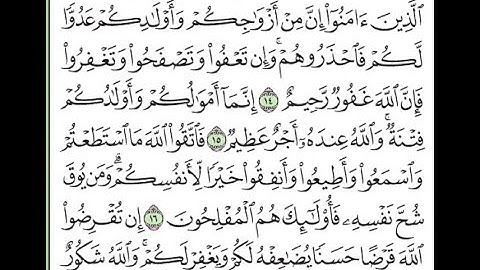 ٱلَّذِينَ ءَامَنُوٓا۟ إِنَّ مِنْ أَزْوَٰجِكُمْ وَأَوْلَـٰدِكُمْ عَدُوًّا
لَّكُمْ فَٱحْذَرُوهُمْ ۚ وَإِن تَعْفُوا۟ وَتَصْفَحُوا۟ وَتَغْفِرُوا۟
فَإِنَّ ٱللَّهَ غَفُورٌ رَّحِيمٌ ١٤ إِنَّمَآ أَمْوَٰلُكُمْ وَأَوْلَـٰدُكُمْ
فِتْنَةٌ ۚ وَٱللَّهُ عِندَهُۥٓ أَجْرٌ عَظِيمٌ ١٥ فَٱتَّقُوا۟ ٱللَّهَ مَا ٱسْتَطَعْتُمْ
وَٱسْمَعُوا۟ وَأَطِيعُوا۟ وَأَنفِقُوا۟ خَيْرًا لِّأَنفُسِكُمْ ۗ وَمَن يُوقَ
شُحَّ نَفْسِهِۦ فَأُو۟لَـٰٓئِكَ هُمُ ٱلْمُفْلِحُونَ ١٦ إِن تُقْرِضُوا۟
ٱللَّهَ قَرْضًا حَسَنًا يُضَـٰعِفْهُ لَكُمْ وَيَغْفِرْ لَكُمْ ۚ وَٱللَّهُ شَكُورٌ